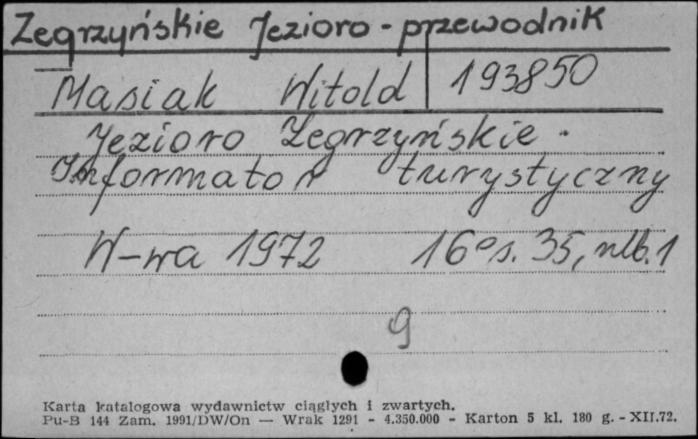 Zegrzyńskie Jezioro - przewodnik
Masiak Witold 193850
Jezioro Zegrzyńskie.
Informator turystyczny
W-wa 1972 16° s. 35, nlb. 1
9
Karta katalogowa wydawnictw ciągłych i zwartych.
Pu-B 144 Zam. 1991/DW/On — Wrak 1291 - 4.350.000 - Karton 5 kl. 180 g. - XII.72.